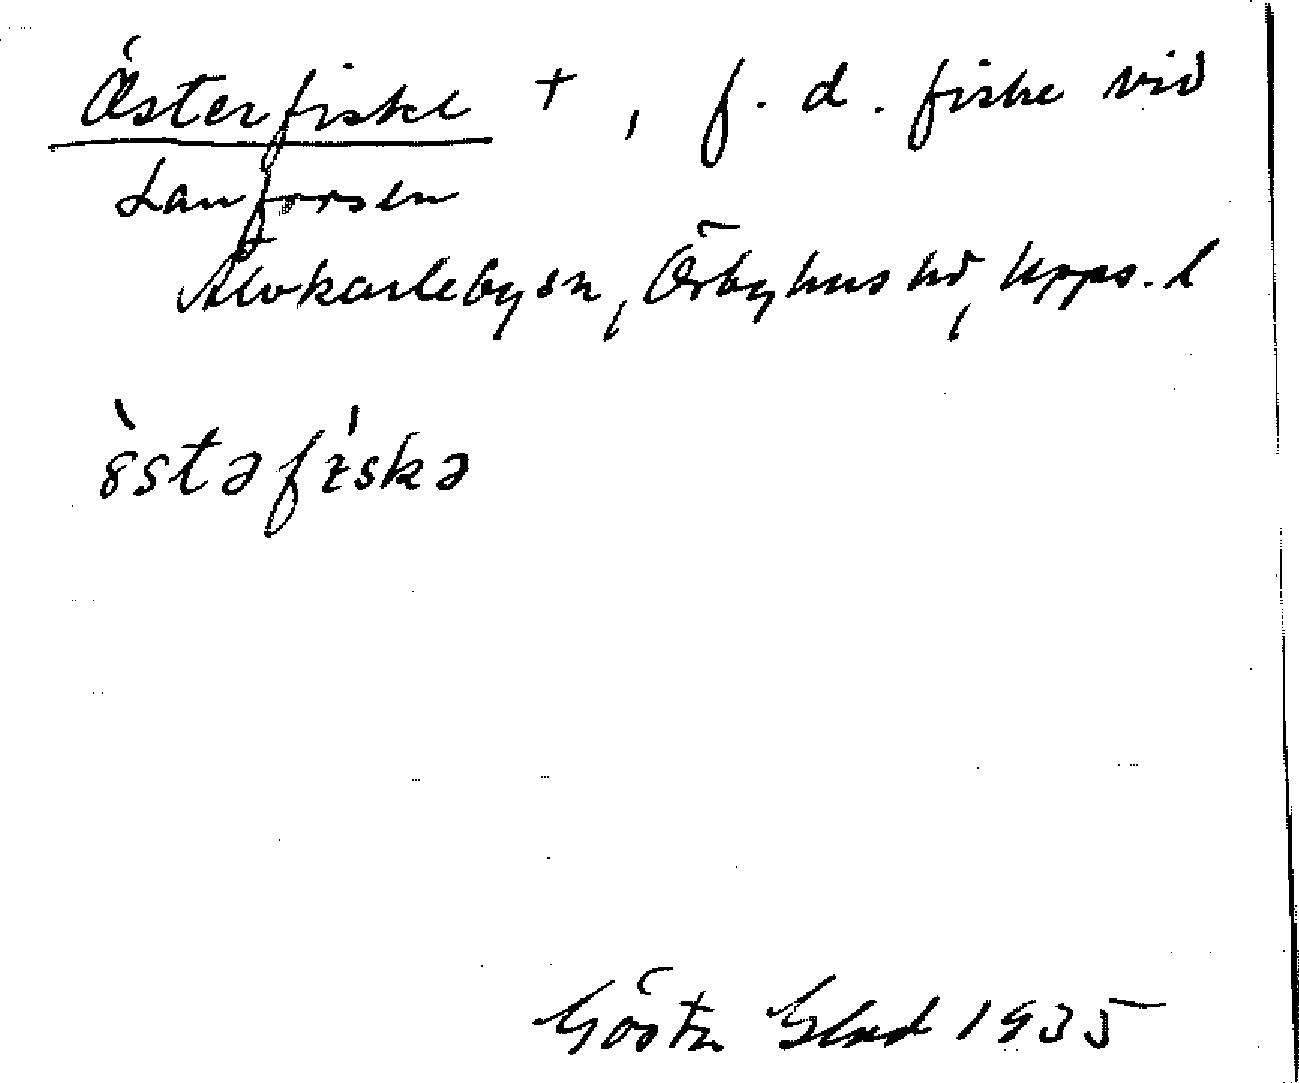 Österfiske +, f. d. fiske vid
Lanforsen
Älvkarleby sn, Örbyhus hd, Upps. l
òstəfìskə
Gösta Blad 1935